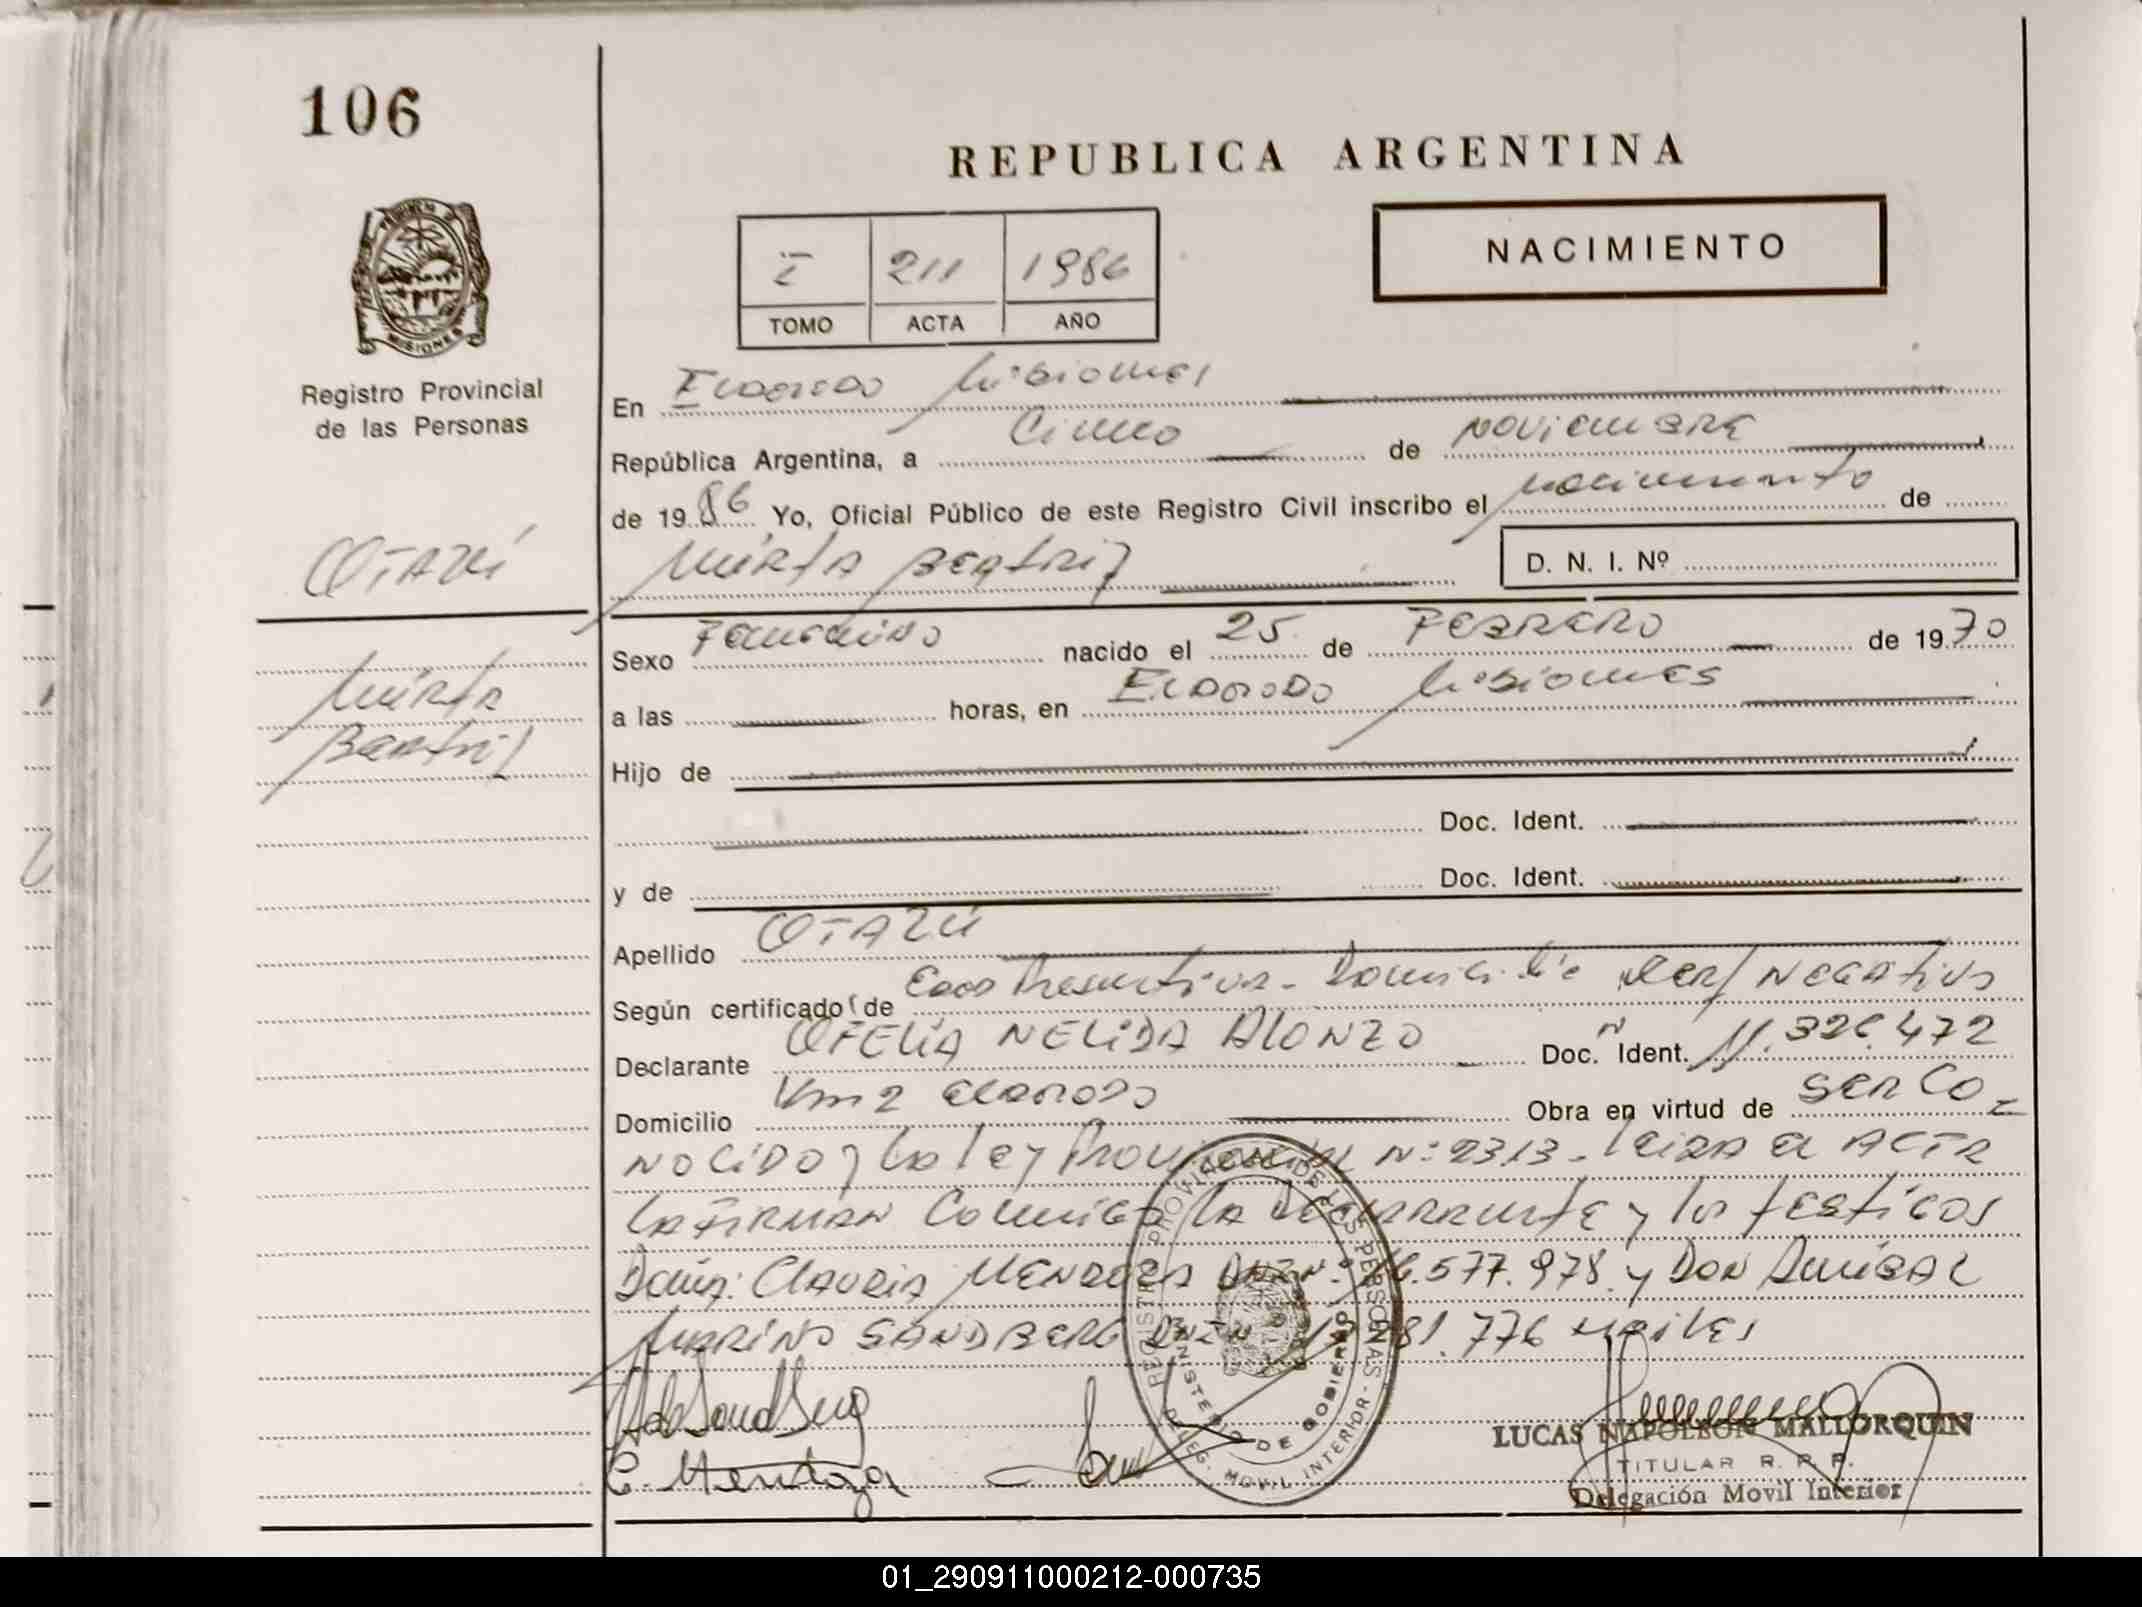 106
REPUBLICA ARGENTINA
NACIMIENTO
I 211 1986
TOMO ACTA AÑO
Registro Provincial
de las Personas
En Eldorado Misiones
República Argentina, a Cinco de noviembre
de 1986 Yo, Oficial Público de este Registro Civil inscribo el nacimiento de
Mirta Beatriz D. N. I. Nº
OTAZÚ
Mirta
Beatriz
Sexo Femenino nacido el 25 de FEBRERO de 1970
a las horas, en Eldorado Misiones
Hijo de
Doc. Ident.
y de Doc. Ident.
Apellido OTAZÚ
Según certificado de Edad Presuntiva - Domicilio Cert NEGATIVO
Declarante OFELIA NELIDA ALONZO Doc. Ident. 11.326.472
Domicilio Km 2 Eldorado Obra en virtud de SER CO
NOCIDO y La ley Provincial Nº 2313 - leida el ACTA
LA FIRMAN Conmigo LA Declarante y los testigos
Doña: CLAUDIA MENDOZA DNI Nº 16.577.978 y DON Anibal
MARINO SANDBERG DNI Nº 776 habiles
C. Mendoza
REGISTRO PROVINCIAL DE LAS PERSONAS - DELEG. MOVIL INTERIOR -
MINISTERIO DE GOBIERNO
LUCAS NAPOLEON MALLORQUIN
TITULAR R. P. P.
Delegación Movil Interior
01_290911000212-000735